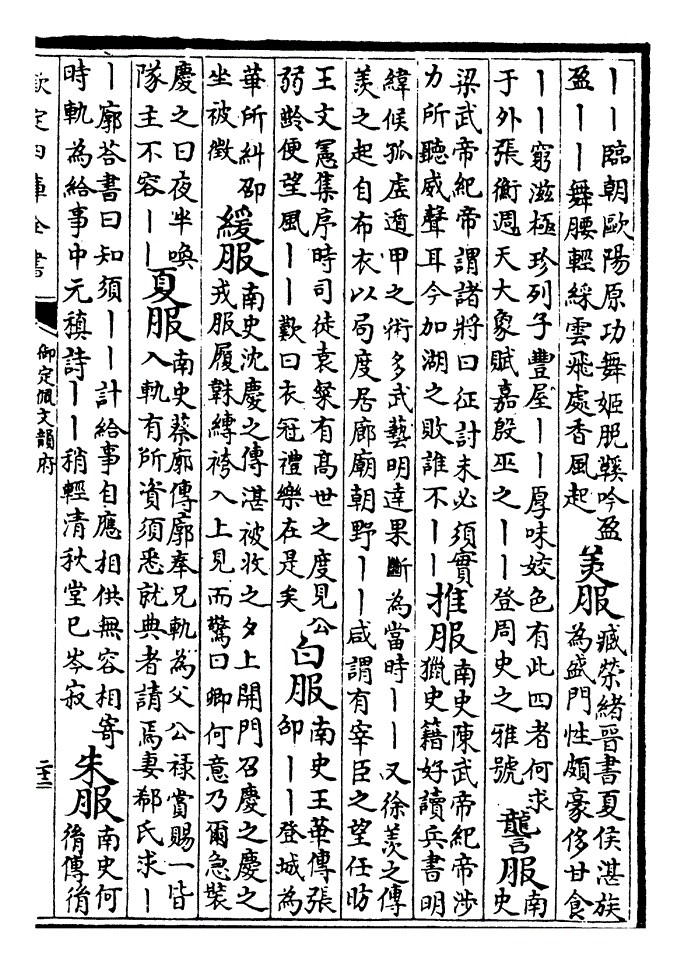 ｜｜臨朝歐陽原功舞姬脫鞵吟盈
盈｜｜舞腰輕綵雲飛處香風起
美服
臧榮緒晉書夏侯湛族
為盛門性頗豪侈甘食
｜｜窮滋極珍列子豐屋｜｜厚味姣色有此四者何求
于外張衡週天大象賦嘉殷巫之｜｜登周史之雅號
讋服
南
史
梁武帝紀帝謂諸將曰征討未必須實
力所聽威聲耳今加湖之敗誰不｜｜
推服
南史陳武帝紀帝涉
獵史籍好讀兵書明
緯候孤虛遁甲之術多武藝明達果斷為當時｜｜又徐羨之傳
羨之起自布衣以局度居廊廟朝野｜｜咸謂有宰臣之望任昉
王文憲集序時司徒袁粲有高世之度見公
弱齡便望風｜｜歎曰衣冠禮樂在是矣
白服
南史王華傳張
邵｜｜登城為
華所糾邵
坐被徵
緩服
南史沈慶之傳湛被收之夕上開門召慶之慶之
戎服履靺縳袴入上見而驚曰卿何意乃爾急裝
慶之曰夜半喚
隊主不容｜｜
夏服
南史蔡廓傳廓奉兄軌為父公祿賞賜一皆
入軌有所資須悉就典者請焉妻郗氏求｜
｜廓答書曰知須｜｜計給事自應相供無容相寄
時軌為給事中元稹詩｜｜稍輕清秋堂已岑寂
朱服
南史何
脩傳脩
欽定四庫全書
御定佩文韻府